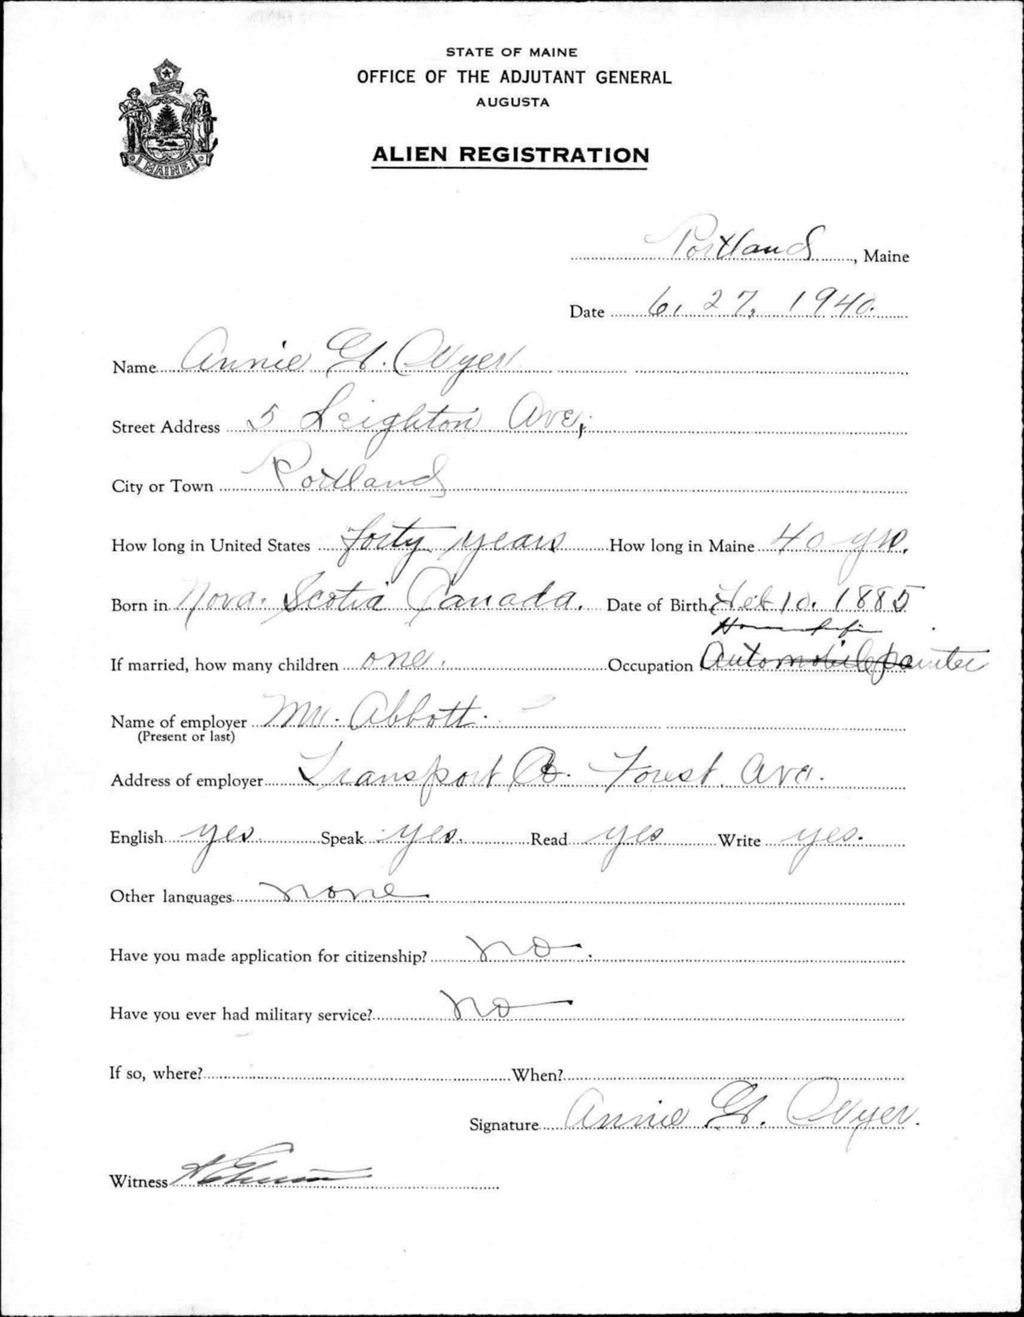 STATE OF MAINE
OFFICE OF THE ADJUTANT GENERAL
AUGUSTA
ALIEN REGISTRATION
MAINE
Portland, Maine
Date 6, 27, 1940.
Name Annie H. Ayer
Street Address 5 Leighton Ave,
City or Town Portland
How long in United States forty years How long in Maine 40 yrs.
Born in Nova Scotia Canada. Date of Birth Feb 10. 1885
Housewife
If married, how many children one. Occupation Automobile painter
Name of employer Mr. Abbott.
(Present or last)
Address of employer Transport Co. Forest Ave.
English yes Speak yes. Read yes Write yes.
Other languages none
Have you made application for citizenship? no.
Have you ever had military service? no
If so, where? When?
Signature Annie H. Ayer.
Witness